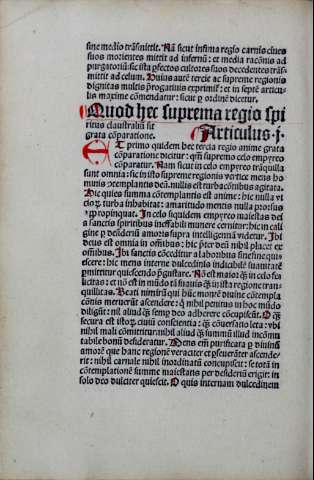 sine medio trãsmittit. Nã sicut infima regio carnis ciues
suos morientes mittit ad infernũ: et media racõnis ad
purgatoriũ: sic ista pfectos cultores suos decedentes trãs⸗
mittit ad celum. Huius autẽ tercie ac supreme regionis
dignitas multis progatiuis exprimit͛: et in septẽ articu⸗
lis maxime cõmendatur: sicut p ordinẽ dicetur.
Quod hec suprema regio spi
ritus claustraliũ sit
grata cõparatione. Articulus .j.
ET primo quidem hec tercia regio anime grata
cõparatione dicitur: qm̃ supremo celo empyreo
cõparatur. Nam sicut in celo empyreo trãquilla
sunt omnia: sic in isto supreme regionis vertice mens ho
minis
Hic quies summa cõtemplantis est anime: hic nulla
turba inhabitat: amaritudo mentis nulla prorsus
appropinquat. In celo siquidem empyreo maiestas dei
a sanctis spiritibus ineffabili munere cernitur: hic in cali
gine p desideriũ amoris supra intelligenciã videtur. Ibi
deus est omnia in oĩnibus: hic pter deũ nihil placet ex
oĩnibus. Ibi sanctis cõceditur a laboribus sine fine qui⸗
escere: hic mens interne dulcedinis indicibilẽ suauitatẽ
pmittitur quiescendo pgustare. Nõ est maior in celo feli
citas: et nõ est in mũdo tã suauis in ista regione tran⸗
quillitas. Beati nimirũ qui hũc montẽ diuine cõtempla
cõnis meruerũt ascendere: nihil penitus in hoc mũdo
diligũt: nil aliud semp deo adherere cõcupiscũt. O
secura est istor ciuiũ consciencia: cõuersatio leta: vbi
nihil mali cõmittitur: nihil aliud summũ illud incõmu
tabile bonũ desideratur. Mens em̃ purificata p diuinũ
amorẽ que hanc regionẽ veraciter et pseuerãter ascende
rit: nihil carnale nihil inordinatũ concupiscit: se totã in
cõtemplationẽ summe maiestatis per desideriũ erigit: in
solo deo dulciter quiescit. O quis internam dulcedinem